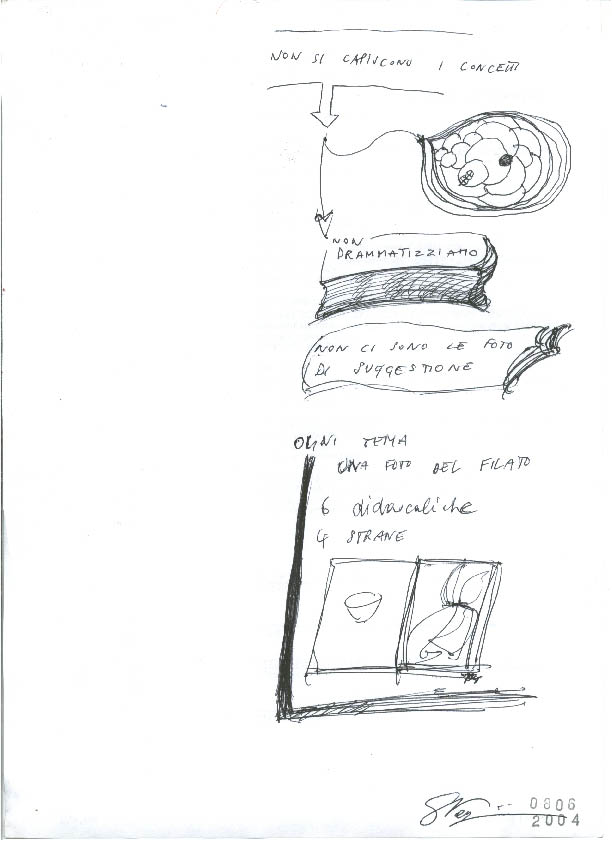 NON SI CAPISCONO I CONCETTI
NON
DRAMMATIZZIAMO
NON CI SONO LE FOTO
DI SUGGESTIONE
OGNI TEMA
UNA FOTO DEL FILATO
6 didascaliche
4 STRANE
0806
2004